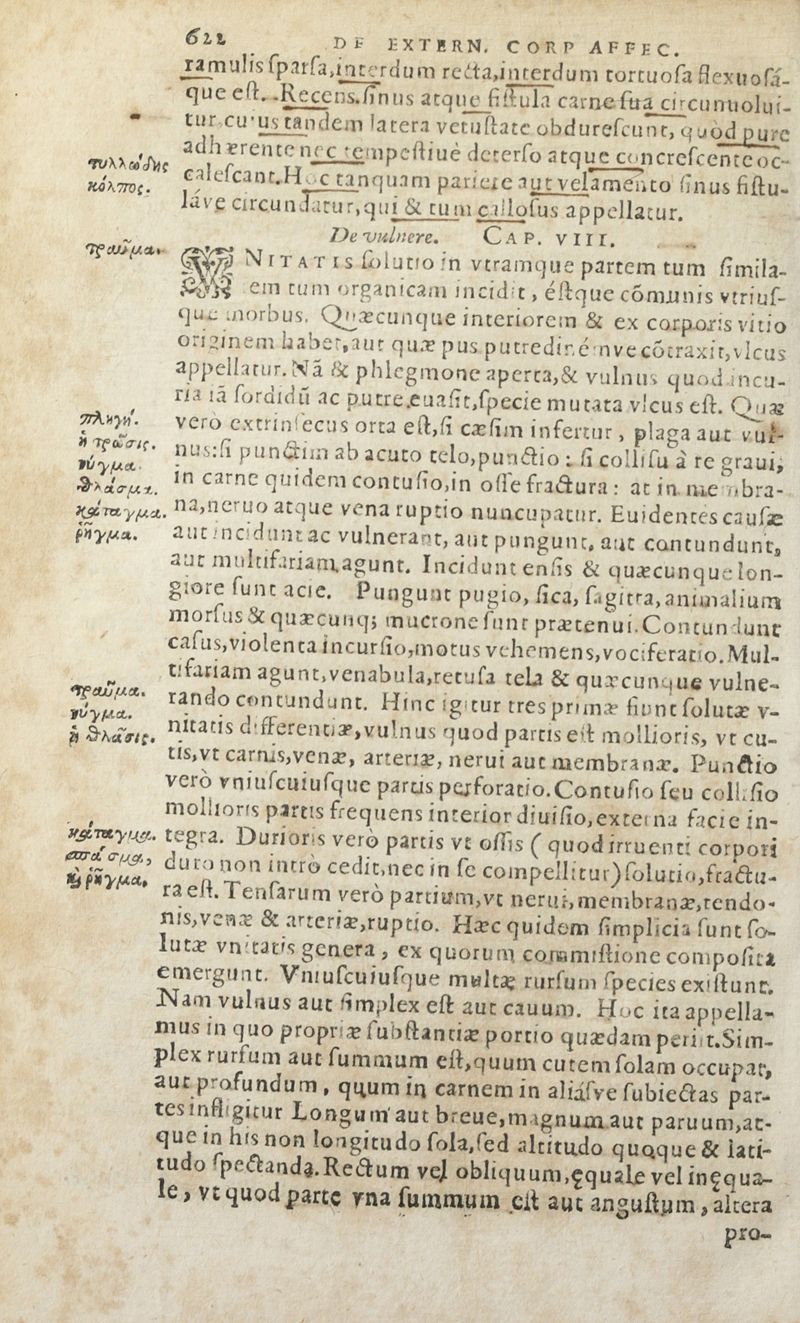 622 DE EXTERN. CORP AFFEC.
ramulis ſparſa,interdum recta,interdum tortuoſa flexuoſá-
que eſt. Recens.ſinus atque fiſtula carne ſua circumuolui-
tur cu'us tandem latera vetuſtate obdureſcunt, quòd pure
adhærente nec tempeſtiuè deterſo atque concreſcente oc-
τυλλώδης
caleſcant.Hoc tanquam pariete aut velamento ſinus fiſtu-
κόλπος.
láve circundatur,qui & tum calloſus appellatur.
De vulnere. CAP. VIII.
τραῦμα.
VNITATIS ſolutio in vtramque partem tum ſimila-
em tum organicam incidit, éſtque cõmunis vtriuſ-
que morbus. Quæcunque interiorem & ex corporis vitio
originem habet,aut quæ pus putredinémve cõtraxit,vlcus
appellatur.Nã & phlegmone aperta,& vulnus quod incu-
ria iã ſordidũ ac putre euaſit,ſpecie mutata vlcus eſt. Quæ
πληγή.
verò extrinſecus orta eſt,ſi cæſim infertur, plaga aut vul-
ἢ τρῶσις.
nus:ſi punctim ab acuto telo,punctio: ſi colliſu à re graui,
νύγμα.
in carne quidem contuſio,in oſſe fractura: at in membra-
θλάσμα.
na,neruo atque vena ruptio nuncupatur. Euidentes cauſæ
κάταγμα.
aut incidunt ac vulnerant, aut pungunt, aut contundunt,
ῥῆγμα.
aut multifariam agunt. Incidunt enſis & quæcunque lon-
giore ſunt acie. Pungunt pugio, ſica, ſagitta,animalium
morſus & quæcunq; mucrone ſunt prætenui.Contundunt
caſus,violenta incurſio,motus vehemens,vociferatio.Mul-
tifariam agunt,venabula,retuſa tela & quæcunque vulne-
τραῦμα.
rando contundunt. Hinc igitur tres primæ fiunt ſolutæ v-
νύγμα.
nitatis differentiæ,vulnus quod partis eſt mollioris, vt cu-
ἢ θλάσις.
tis,vt carnis,venæ, arteriæ, nerui aut membranæ. Punctio
verò vniuſcuiuſque partis perforatio.Contuſio ſeu colliſio
mollioris partis frequens interior diuiſio,externa facie in-
κάταγμα.
tegra. Durioris verò partis vt oſſis ( quod irruenti corpori
σπάσμα,
duro non intrò cedit,nec in ſe compellitur)ſolutio,fractu-
καὶ ῥῆγμα.
ra eſt. Tenſarum verò partium,vt nerui,membranæ,tendo-
nis,venæ & arteriæ,ruptio. Hæc quidem ſimplicia ſunt ſo-
lutæ vnitatis genera, ex quorum commiſtione compoſita
emergunt. Vniuſcuiuſque multæ rurſum ſpecies exiſtunt.
Nam vulnus aut ſimplex eſt aut cauum. Hoc ita appella-
mus in quo propriæ ſubſtantiæ portio quædam periit.Sim-
plex rurſum aut ſummum eſt,quum cutem ſolam occupat,
aut profundum, quum in carnem in aliáſve ſubiectas par-
tes infligitur Longum aut breue,magnum aut paruum,at-
que in his non longitudo ſola,ſed altitudo quoque & lati-
tudo ſpectanda.Rectum vel obliquum,ęquale vel inęqua-
le, vt quod parte vna ſummum eſt aut anguſtum, altera
pro-